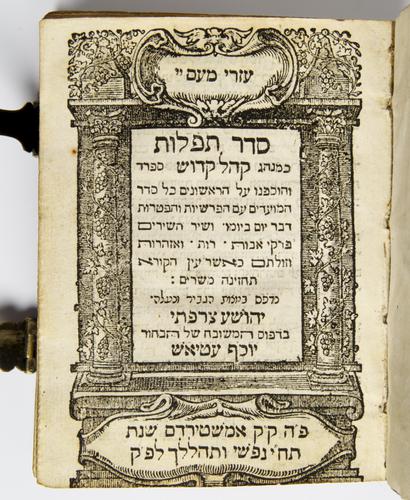 עזרי מעם יי
סדר תפלות
כמנהג קהל קדוש ספרד
והוספנו על הראשונים כל סדר
המועדים עם הפרשיות והפטרות
דבר יום ביומו ושיר השירים
פרקי אבות רות ואזהרות
וזולתם כאשר עין הקורא
תחזינה משרים :
נדפס ביומות הגביר ונעלה
יהושע צרפתי
בדפוס המשובח של הבחור
יוסף עטיאש
פ״ה ק״ק אמשטירדם שנת
תחי נפשי ותהללך לפ״ק